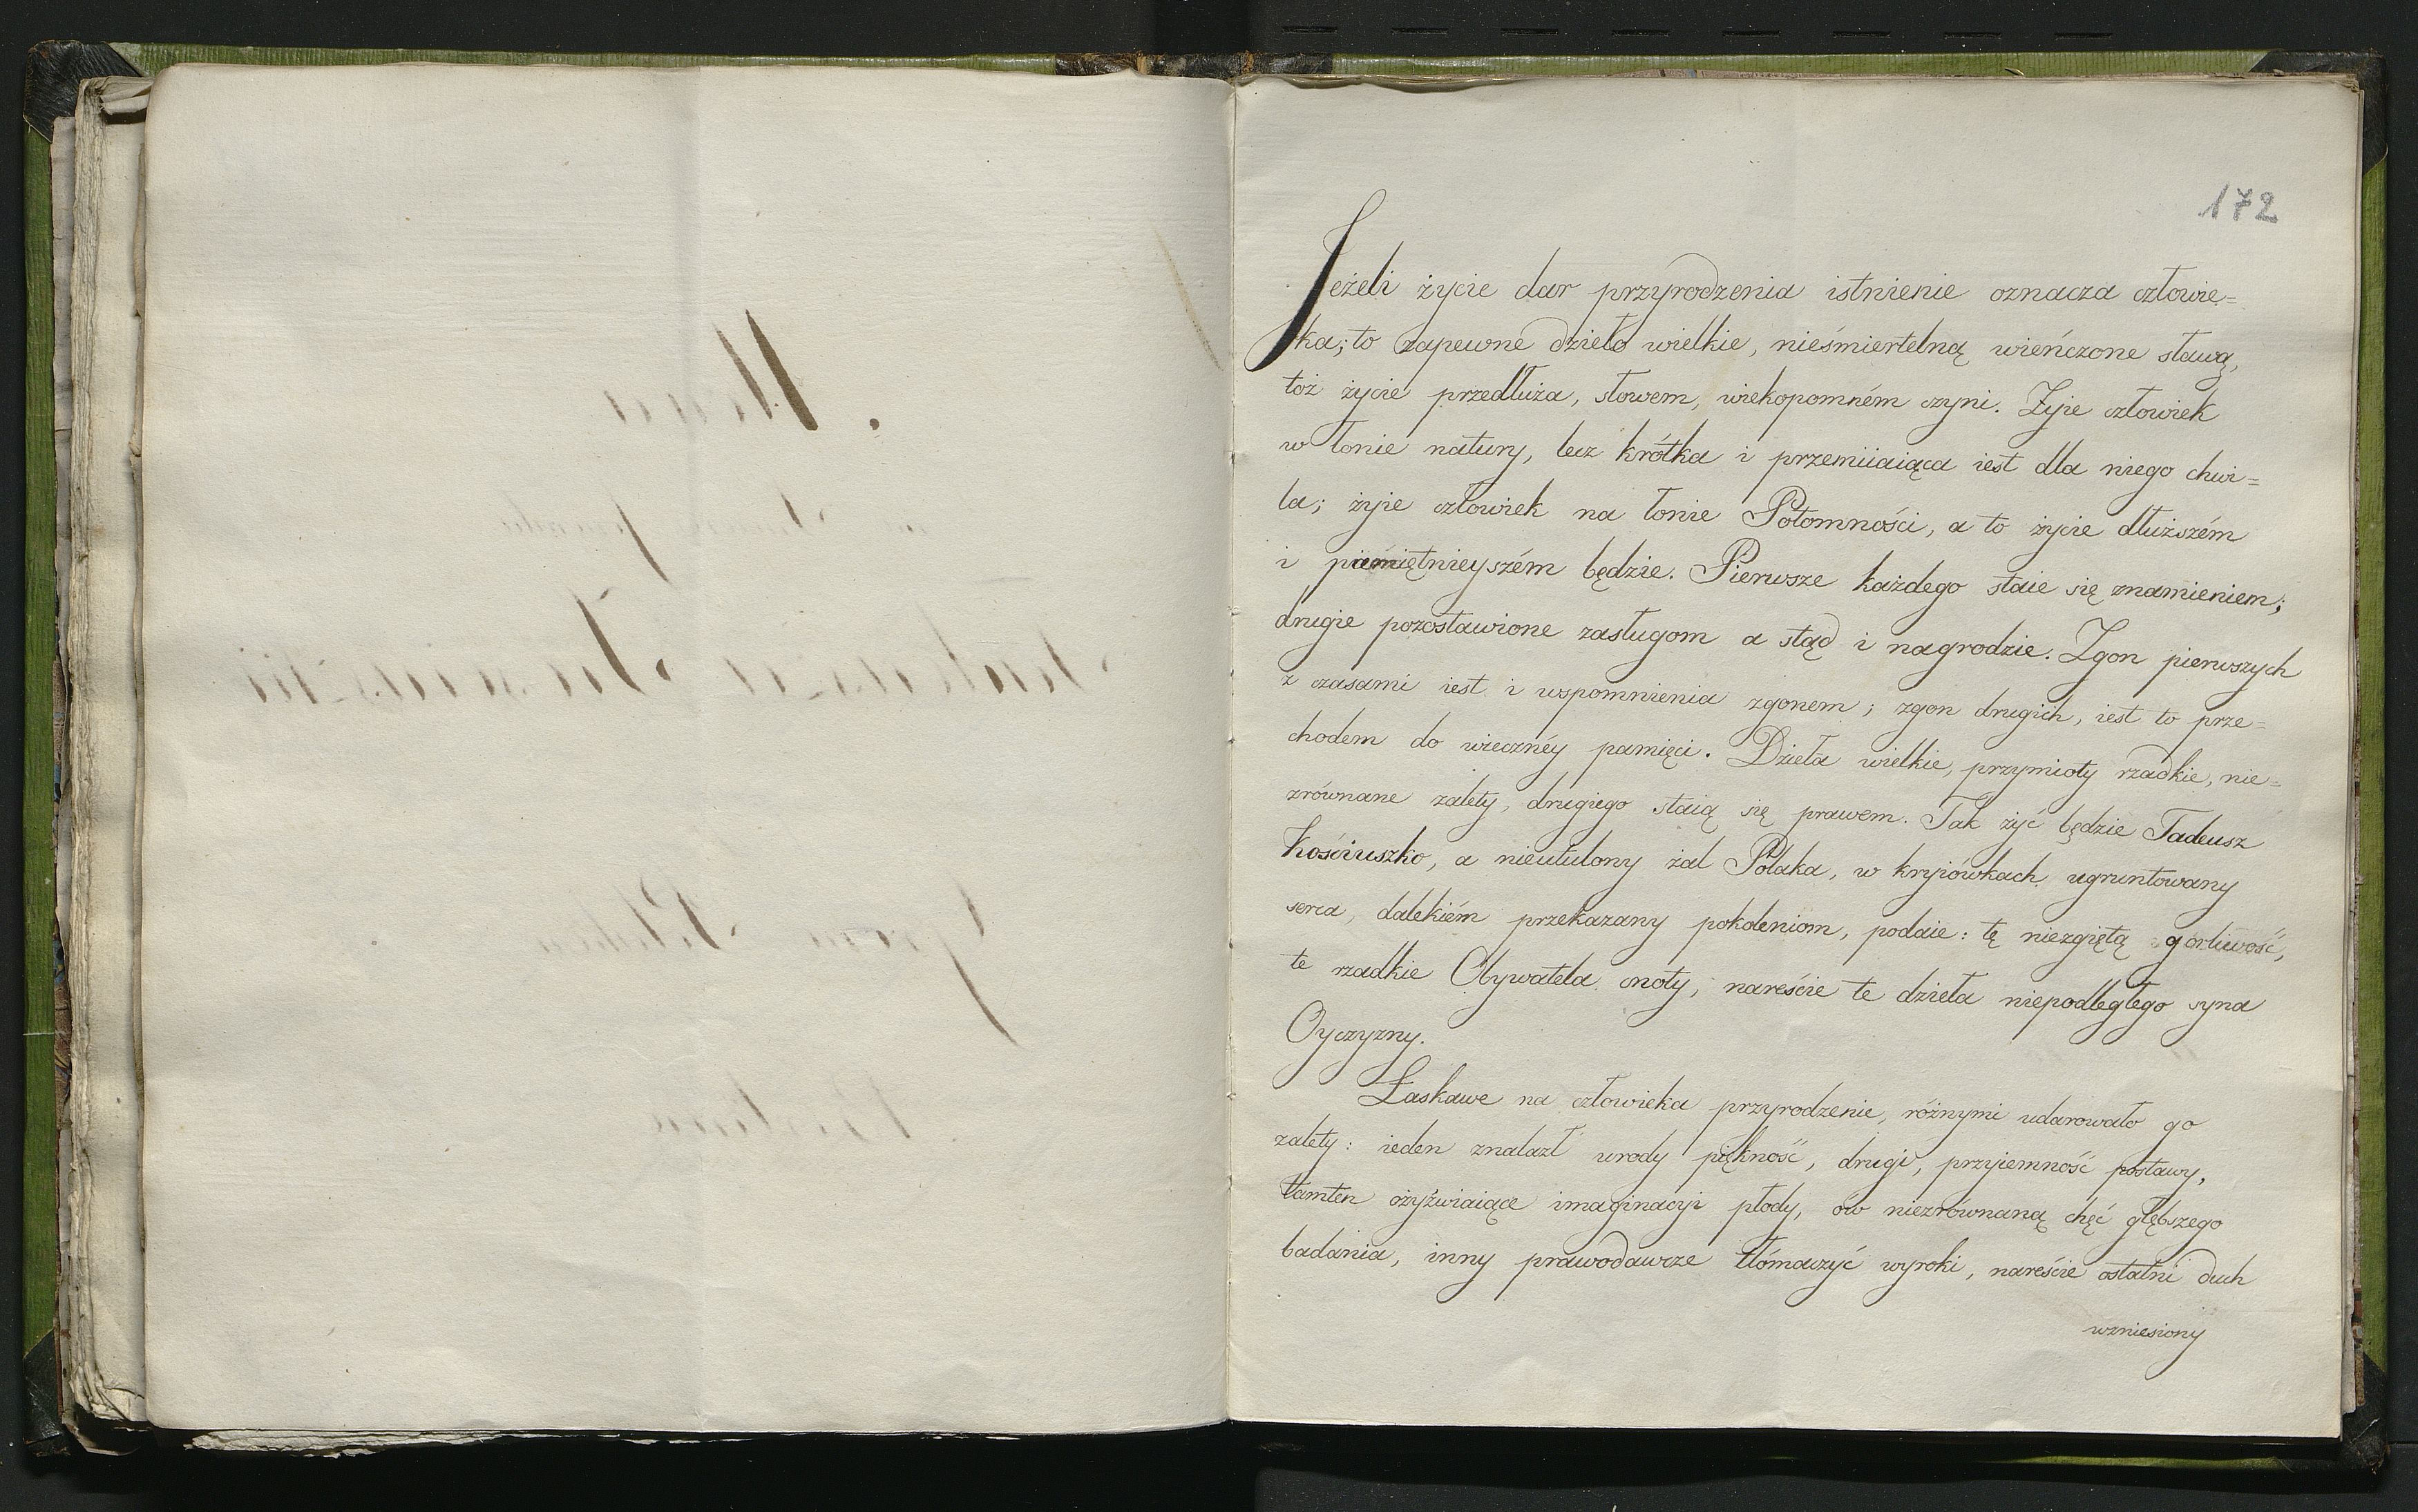 172
Jeżeli życie dar przyrodzenia istnienie oznacza człowie=
ka; to zapewne dzieło wielkie, nieśmiertelną wieńczone sławą,
toż życie przedłuża, słowem, wiekopomném czyni. Żyie człowiek
w łonie natury, lecz krótka i przemiiaiąca iest dla niego chwi=
la; żyie człowiek na łonie Potomności, a to życie dłuższém
i pamiętnieyszém będzie. Pierwsze każdego staie się znamieniem;
drugie pozostawione zasługom a stąd i nagrodzie. Zgon pierwszych
z czasami iest i wspomnienia zgonem; zgon drugich, iest to prze=
chodem do wieczney pamięci. Dzieła wielkie, przymioty rzadkie, nie=
zrównane zalety, drugiego staią się prawem. Tak żyć będzie Tadeusz
Kościuszko, a nieutulony żal Polaka, w kryiówkach ugruntowany
serca, dalekiém przekazany pokoleniom, podaie: tę niezgiętą gorliwość,
te rzadkie Obywatela cnoty, nareście te dzieła niepodległego syna
Oyczyzny.
Łaskawe na człowieka przyrodzenie, różnymi udarowało go
zalety: ieden znalazł urody piękność, drugi, przyiemność postawy,
tamten ożyźwiaiące imaginacyi płody, ów niezrównaną chęć głębszego
badania, inny prawodawcze tłómaczyć wyroki, nareście ostatni duch
wzniesiony